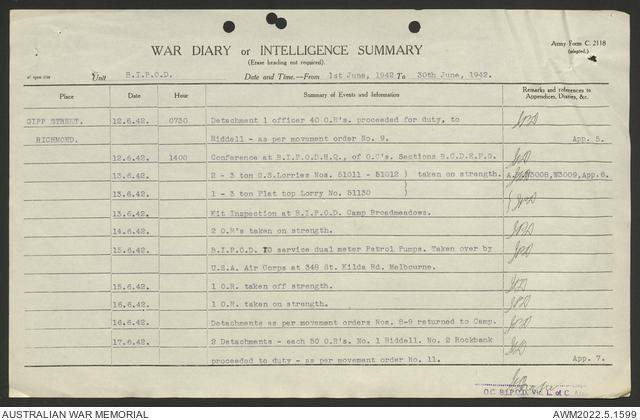 WAR DIARY or INTELLIGENCE SUMMARY
Army Form C. 2118
(Erase heading not required).
(adapted.)
Unit B.I.P.O.D. Date and Time.—From 1st June, 1942 To 30th June, 1942.
Place Date Hour Summary of Events and Information Remarks and references to
Appendices, Diaries, &c.
GIPP STREET. 12.6.42. 0730 Detachment 1 officer 40 O.R's. proceeded for duty, to
RICHMOND. Riddell - as per movement order No. 9. App. 5.
12.6.42. 1400 Conference at B.I.P.O.D.H.Q., of O.C's. Sections B.C.D.E.F.G.
13.6.42. 2 - 3 ton G.S.Lorries Nos. 51011 - 51012 ) taken on strength. W3008, W3009, App.6.
13.6.42. 1 - 3 ton Flat top Lorry No. 51130 )
13.6.42. Kit Inspection at B.I.P.O.D. Camp Broadmeadows.
14.6.42. 2 O.R's taken on strength.
15.6.42. B.I.P.O.D. TO service dual meter Patrol Pumps. Taken over by
U.S.A. Air Corps at 348 St. Kilda Rd. Melbourne.
15.6.42. 1 O.R. taken off strength.
16.6.42. 1 O.R. taken on strength.
16.6.42. Detachments as per movement orders Nos. 8-9 returned to Camp.
17.6.42. 2 Detachments - each 50 O.R's. No. 1 Riddell. No. 2 Rockbank
proceeded to duty - as per movement order No. 11. App. 7.
AUSTRALIAN WAR MEMORIAL AWM2022.5.1599